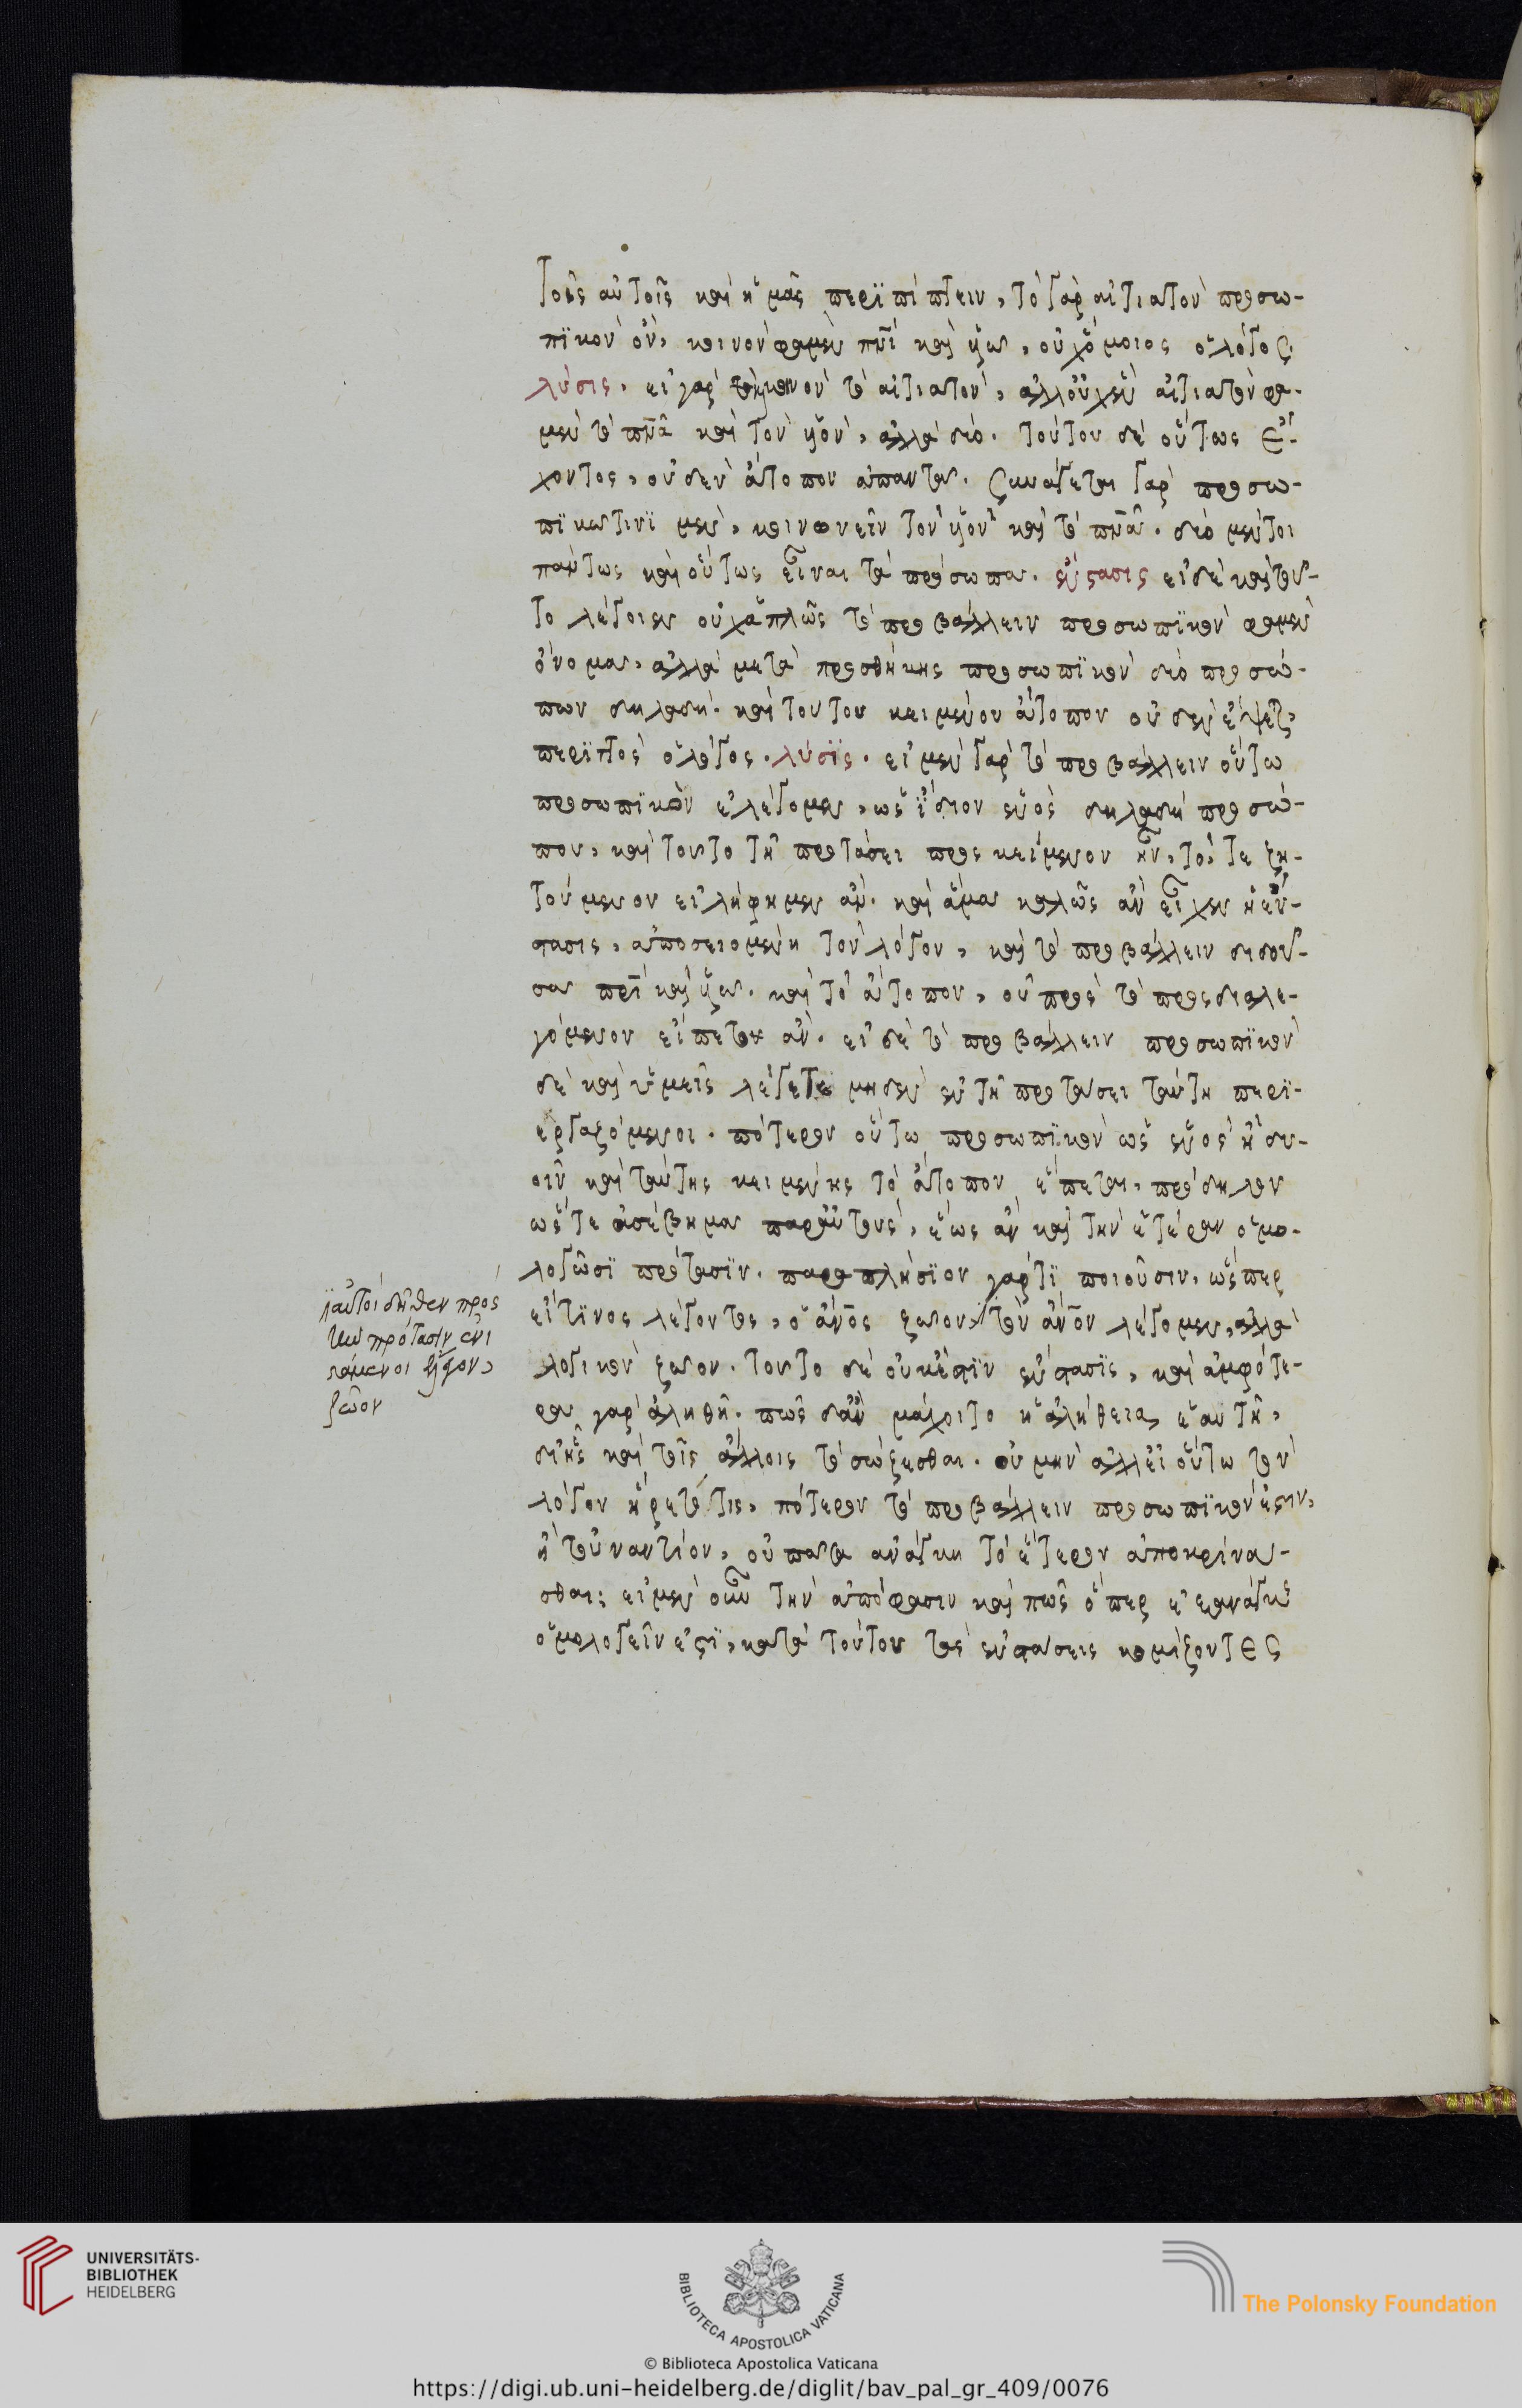 τοὺς αὐτοῖς καὶ ἡμᾶς περιπίπτειν, τὸ γὰρ αἰτιατὸν προσω-
πικὸν ὂν, κοινὸν φαμὲν πνι καὶ υἱῶ, οὐχ' ὅμοιος ὁ λόγος.
λύσις. εἰ γὰρ καὶ κοινὸν τὸ αἰτιατὸν, ἀλλ' οὐχ ἓν αἰτιατόν φα-
μεν τὸ πνα καὶ τὸν υἱὸν, ἀλλὰ δύο. τούτου δὲ οὕτως ἔ-
χοντος, οὐδὲν ἄτοπον ἀπαντᾶ. συνάγεται γὰρ προσω-
πικῶ τινὶ μὲν, κοινωνεῖν τὸν υἱὸν καὶ τὸ πνα. δύο μέντοι
πάντως καὶ οὕτως εἶναι τὰ πρόσωπα. ἔνστασις εἰ δὲ καὶ τοῦ-
το λέγοιεν οὐχ' ἁπλῶς τὸ προβάλλειν προσωπικόν φαμεν
ὄνομα, ἀλλὰ μετὰ προσθήκης προσωπικὸν δύο προσώ-
πων δηλαδή. καὶ τούτου κειμένου ἄτοπον οὐδὲν ἕψεται,
περιττὸς ὁ λόγος. λύσις. εἰ μὲν γὰρ τὸ προβάλλειν οὕτω
προσωπικὸν ἐλέγομεν, ὡς ἴδιον ἑνὸς δηλαδὴ προσώ-
που, καὶ τοῦτο τῆ προτάσει προσκείμενον ἦν, τό, τε ζη-
τούμενον εἰλήφημεν ἄν. καὶ ἅμα καλῶς ἂν εἶχεν ἡ ἔν-
στασις, ἀποσειομένη τὸν λόγον, καὶ τὸ προβάλλειν διδοῦ-
σα πρι καὶ υἱῶ. καὶ τὸ ἄτοπον, οὐ πρὸς τὸ προσδιαλε-
γόμενον εἵπετο ἄν. εἰ δὲ τὸ προβάλλειν προσωπικὸν
δὲ καὶ ὑμεῖς λέγετε μηδὲν ἐν τῆ προτάσει ταύτη περι-
εργαζόμενοι. πότερον οὕτω προσωπικὸν ὡς ἑνὸς ἢ δυ-
οῖν καὶ ταύτης κειμένης τὸ ἄτοπον ἕπεται, πρόδηλον
ὥστε ἀσέβημα παρ' αὐτοὺς, ἕως ἂν καὶ τὴν ἑτέραν ὁμο-
λογῶσι πρότασιν. παραπλήσιον γάρ τι ποιοῦσιν, ὥσπερ
εἴ τινος λέγοντος, ὁ ἄνος ζῶον, τὸν ἄνον λέγομεν, ἀλλὰ
λογικὸν ζῶον. τοῦτο δὲ οὐκ ἔστιν ἔνστασις, καὶ ἀμφότε-
ρα γὰρ ἀληθῆ. πῶς δ' ἂν μάχοιτο ἡ ἀλήθεια, ἑαυτῆ,
δι' ἧς καὶ τοῖς ἄλλοις τὸ σώζεσθαι. οὐ μὴν ἀλλ' εἰ οὕτω τὸν
λόγον ἤρετό τις, πότερον τὸ προβάλλειν προσωπικόν ἐστιν,
ἢ τοὐναντίον, οὐ πᾶσα ἀνάγκη τὸ ἕτερον ἀποκρίνα-
σθαι; εἰ μὲν οὖν τὴν ἀπόφασιν καὶ πῶς ὅπερ ἐξ ἀνάγκης
ὁμολογεῖν ἐστι, κατὰ τούτου τὰς ἐνστάσεις κομίζοντες
καὶ αὐτοὶ δῆθεν προς
τὴν πρότασιν ἐνι
στάμενοι
ζῶον
UNIVERSITÄTS-
BIBLIOTHEK
HEIDELBERG
BIBLIOTECA APOSTOLICA VATICANA
The Polonsky Foundation
© Biblioteca Apostolica Vaticana
https://digi.ub.uni-heidelberg.de/diglit/bav_pal_gr_409/0076